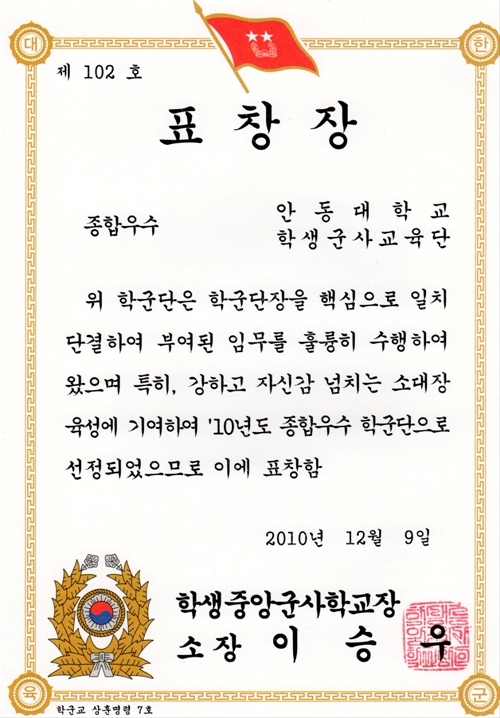 대 한
제 102 호
표 창 장
종합우수
안 동 대 학 교
학생군사교육단
위 학군단은 학군단장을 핵심으로 일치
단결하여 부여된 임무를 훌륭히 수행하여
왔으며 특히, 강하고 자신감 넘치는 소대장
육성에 기여하여 '10년도 종합우수 학군단으로
선정되었으므로 이에 표창함
2010년 12월 9일
학생중앙군사학교장
소장 이 승 우
육 군
학군교 상훈명령 7호